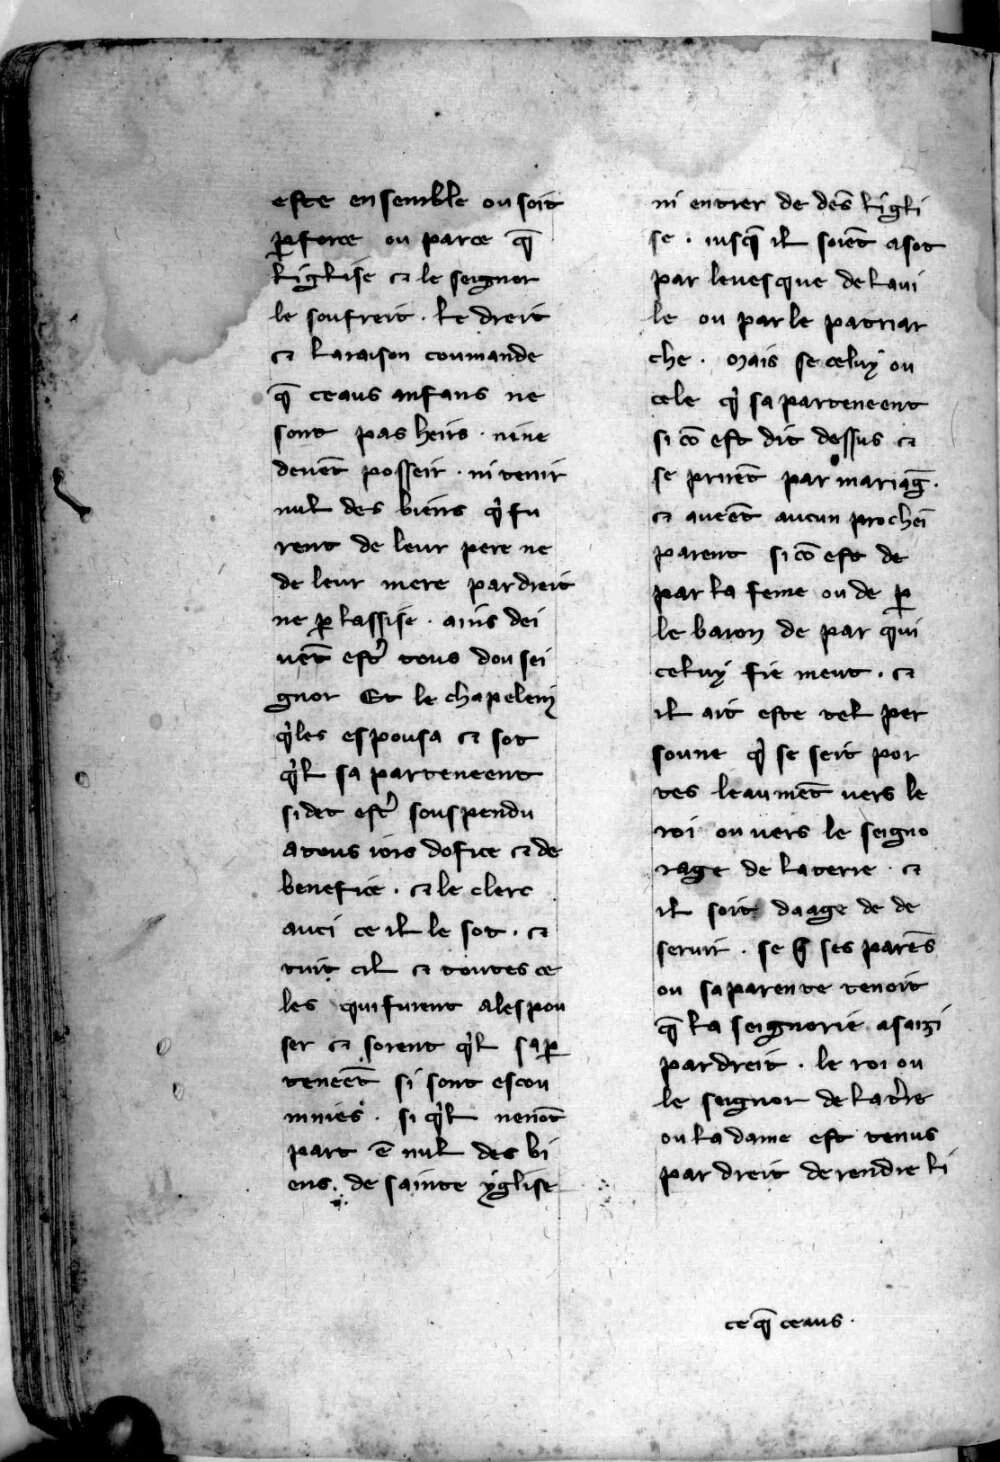 este ensemble ou soit
ꝑforce ou parce q̄
liglise ⁊ le seignor
le soufreit. le dreit
⁊ laraison coumande
q̄ ceaus anfans ne
sont pas heirs. nine
deuēt posseir. ni tenir
nul des biens qͥ fu
rent de leur pere ne
de leur mere par dreit
ne ꝑ lassise. ains dei
uēt estr̉ tous dou sei
gnor Et le chapelein
qͥles espousa ⁊ sot
qͥl sa parteneent
si det estr̉ souspendu
atous iors dofice ⁊ de
benefice. ⁊ le clerc
auci ce il le sot. ⁊
tuit cil ⁊ toutes ce
les qui furent alespou
ser ⁊ sorent qͥl saꝑ
teneēt si sont escou
mnies. si qͥl nenōt
part ē nul des bi
ens. de sainte yglise
ni entrer de dēs ligli
se. iusq̄ il soiēt asot
par leuesque de laui
le ou par le patriar
che. Mais se celuy ou
cele qͥ sa parteneent
si cō est dit dessus ⁊
se prirēt par mariaḡ.
⁊ aueēt aucun procheī
parent si cō est de
par la feme ou de ꝑ
le baron de par qui
celuy fie meut. ⁊
il ait este tel per
soune qͥ se seit por
tes leaumēt uers le
roi ou uers le seigno
rage de laterre. ⁊
il soit daage de de
seruir. se ses parēs
ou saparente tenoit
q̄ la seignorie asaizi
pardreit. le roi ou
le seignor de lat̉re
ou la dame est tenus
par dreit de rendre li
ce q̄ ceaus.